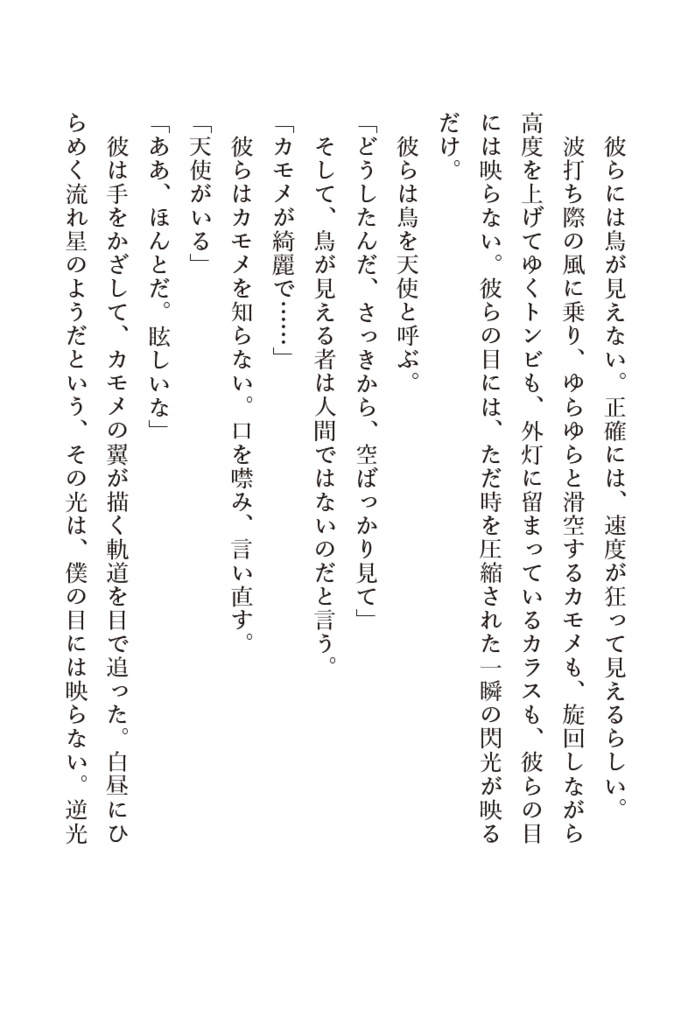 彼らには鳥が見えない。正確には、速度が狂って見えるらしい。
波打ち際の風に乗り、ゆらゆらと滑空するカモメも、旋回しながら
高度を上げてゆくトンビも、外灯に留まっているカラスも、彼らの目
には映らない。彼らの目には、ただ時を圧縮された一瞬の閃光が映る
だけ。
彼らは鳥を天使と呼ぶ。
「どうしたんだ、さっきから、空ばっかり見て」
そして、鳥が見える者は人間ではないのだと言う。
「カモメが綺麗で……」
彼らはカモメを知らない。口を噤み、言い直す。
「天使がいる」
「ああ、ほんとだ。眩しいな」
彼は手をかざして、カモメの翼が描く軌道を目で追った。白昼にひ
らめく流れ星のようだという、その光は、僕の目には映らない。逆光